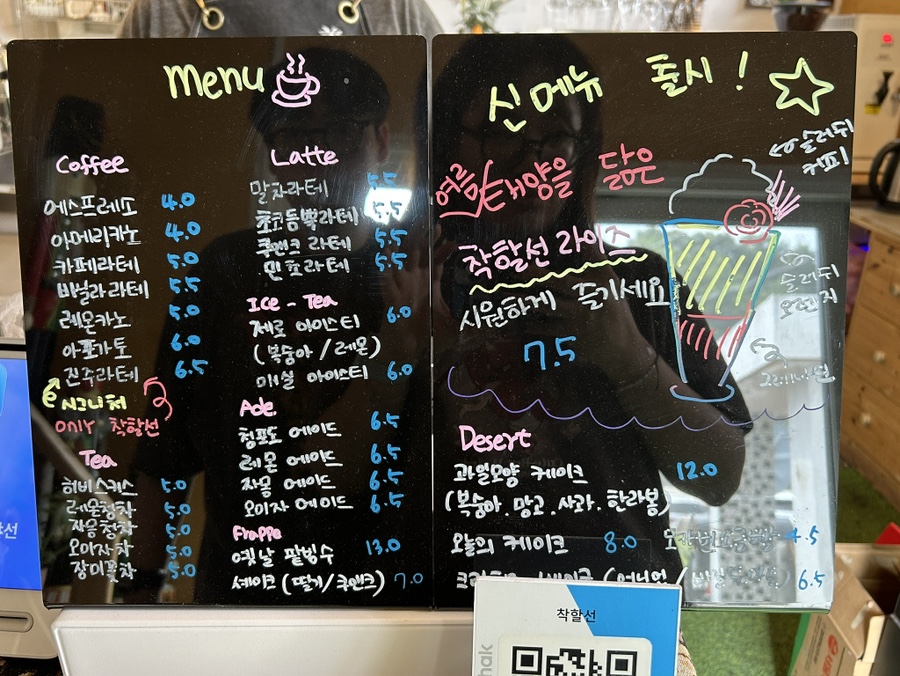 Menu
Coffee
에스프레소 4.0
아메리카노 4.0
카페라테 5.0
바닐라라테 5.5
레몬카노 5.0
아포가토 6.0
진주라테 6.5
시그니처
only 착할선
Tea
허비스커스 5.0
레몬청차 5.0
자몽청차 5.0
오미자차 5.0
장미꽃차 5.0
Latte
말차라테 5.5
초코듬뿍라테 5.5
쿠앤크 라테 5.5
민초라테 5.5
Ice - Tea
제로 아이스티 6.0
(복숭아 / 레몬)
매실 아이스티 6.0
Ade.
청포도 에이드 6.5
레몬 에이드 6.5
자몽 에이드 6.5
오미자 에이드 6.5
Frappe
옛날 팥빙수 13.0
셰이크 (딸기/쿠앤크) 7.0
신메뉴 출시 !
여름 태양을 닮은
착할선 라이즈
시원하게 즐기세요
7.5
슬러쉬
커피
슬러쉬
오렌지
Desert
과일모양 케이크 12.0
(복숭아. 망고. 사과. 한라봉)
오늘의 케이크 8.0
4.5
6.5
착할선